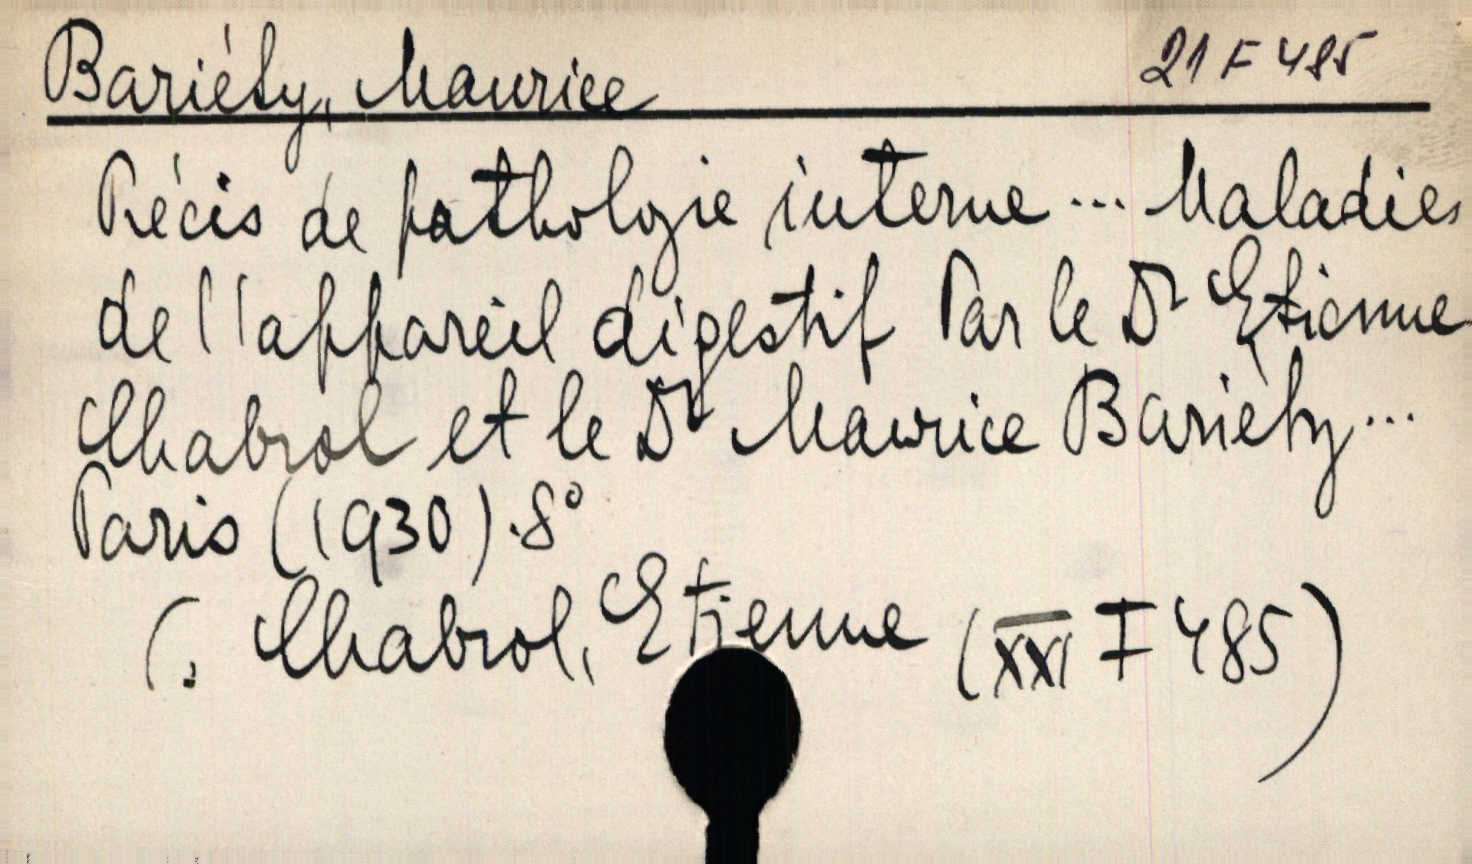 Bariéty, Maurice 21 F 485
Précis de pathologie interne ... Maladies
de l'appareil digestif Par le Dr Etienne
Chabrol et le Dr Maurice Bariéty ...
Paris (1930). 8°
(: Chabrol, Etienne (XXI F 485)